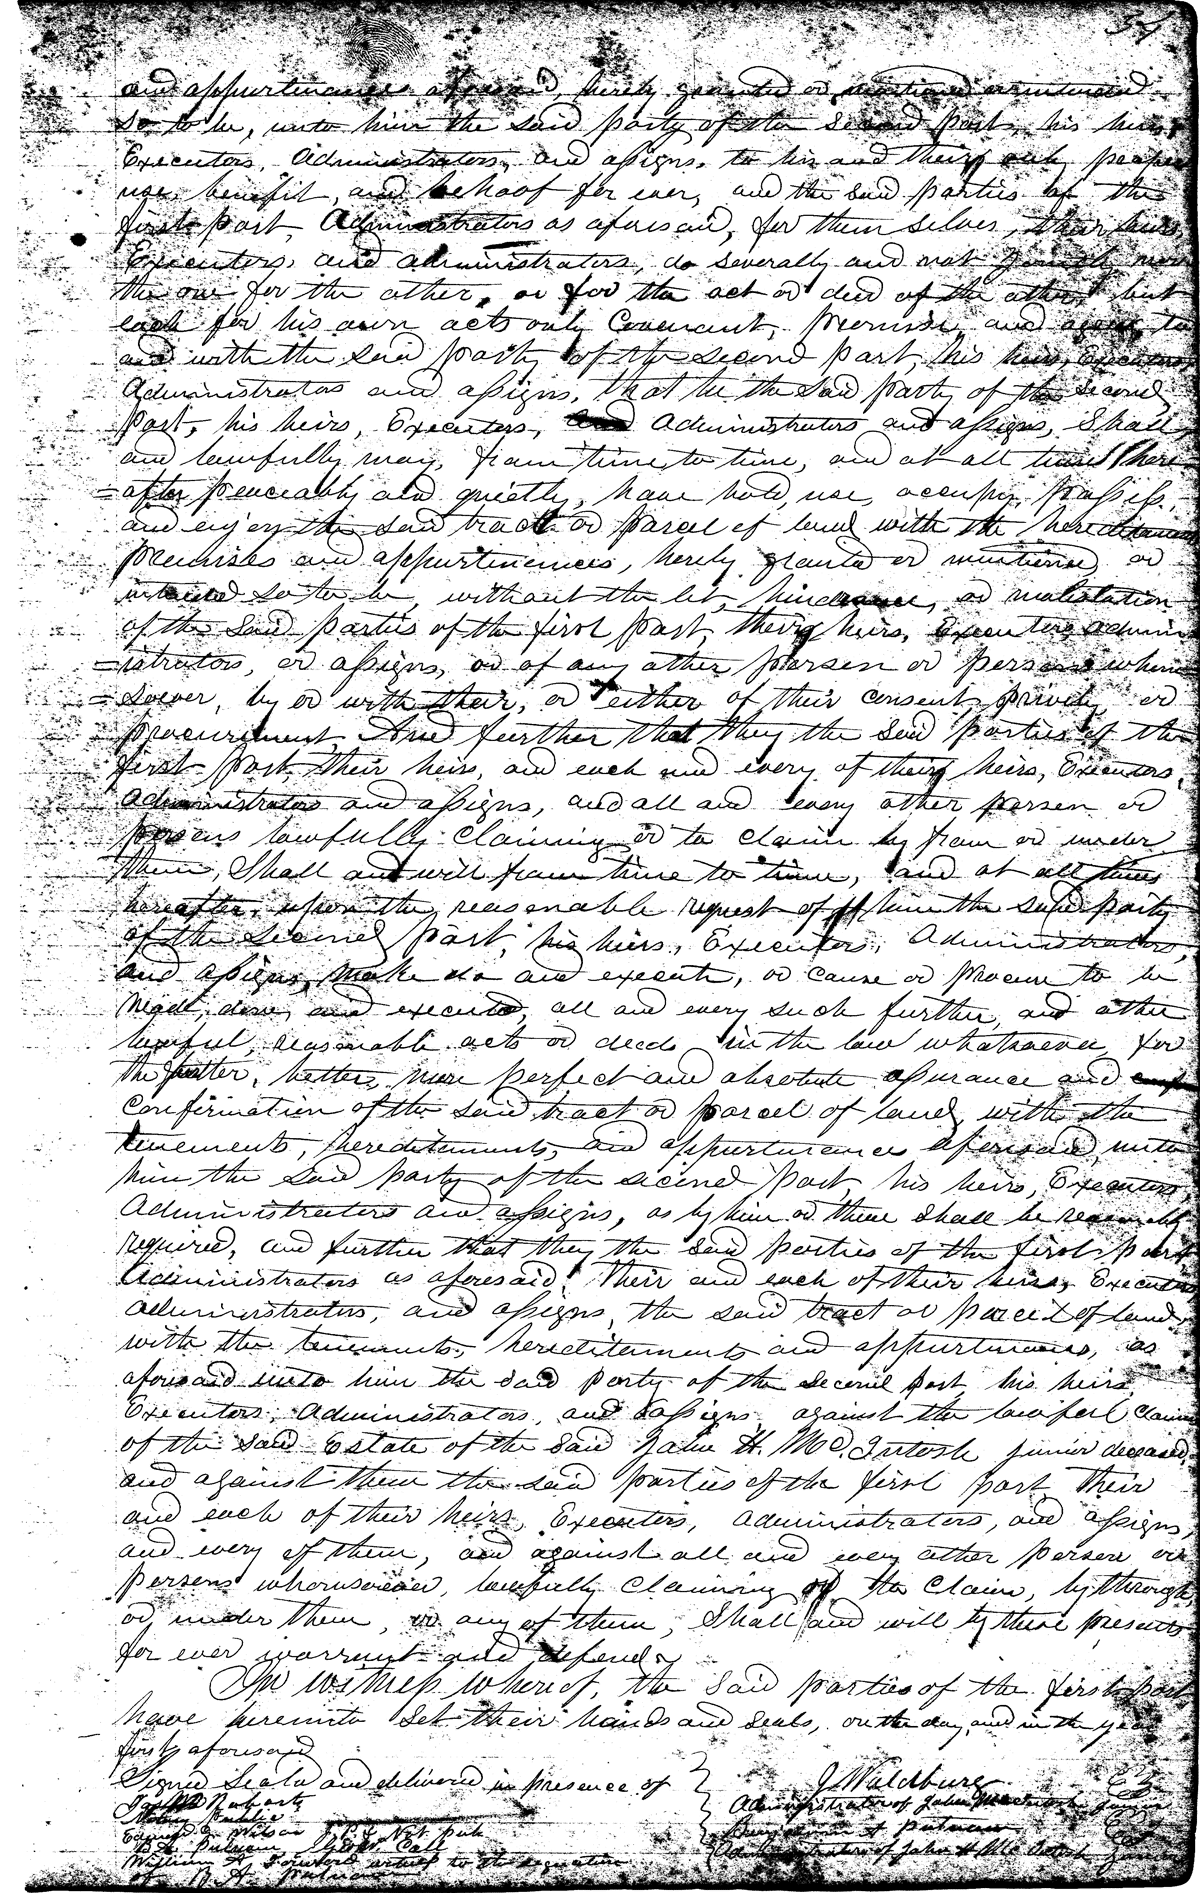 54
and appurtenances aforesaid, hereby granted or mentioned or intended
so to be, unto him the said party of the second part, his heirs
Executors, Administrators, and assigns, to his and their only proper
use, benefit, and behoof for ever, and the said parties of the
first part, Administrators as aforesaid, for them selves, their heirs
Executors, and administrators, do severally and not jointly nor
the one for the other, or for the act or deed of the other, but
each for his own acts only Covenant, promise, and agree, to
and with the said party of the second part, his heirs, Executors
Administrators and assigns, that he the said party of the second
part, his heirs, Executors, and Administrators and assigns, Shall
and lawfully may, from time to time, and at all times here
=after peaceably and quietly, have hold, use, occupy, possess,
and enjoy the said tract or parcel of land with the hereditaments
premises and appurtinances, hereby granted or mentioned, or
intended so to be, without the let, hindrance, or molestation
of the said parties of the first part, their heirs, Executors admin
=istrators, or assigns, or of any other person or persons whom
=soever, by or with their, or either of their consent, privity, or
procurement, And further that they the said parties of the
first part, their heirs, and each and every of their heirs, Executors,
Administrators and assigns, and all and every other person or
persons lawfully claiming or to claim by from or under
them, Shall and will from time to time, and at all times
hereafter, upon the reasonable request of him the said party
of the second part, his hiers, Executors, Administrators,
and assigns, make do and execute, or cause or procure to be
made, done, and executed, all and every such further, and other
lawful, reasonable acts or deeds in the law whatsoever, for
the better, more perfect and absolute assurance and
confirmation of the said tract or parcel of land, with the
tenements, hereditements, and appurtenances aforesaid, unto
him the said party of the second part, his heirs, Executors,
Administrators and assigns, as by him or them shall be reasonably
required, and further that they the said parties of the first part
Administrators as aforesaid, their and each of their heirs, Executors
administrators, and assigns, the said tract or parcel of land,
with the tenements, hereditements and appurtenances, as
aforesaid unto him the said party of the second part, his heirs,
Executors, Administrators, and assigns, against the lawful claims
of the said Estate of the said John H. McIntosh junior deceased,
and against them the said parties of the first part, their
and each of their heirs, Executors, administrators, and assigns,
and every of them, and against all and every other person or
persons whomsoever, lawfully claiming or to claim, by through
or under them, or any of them, Shall and will by these presents
for ever warrant and defend.
In witness whereof, the said parties of the first part
have hereunto set their hands and seals, on the day, and in the year
first aforesaid
Signed Seald and delivered in presence of
J Waldburg
Administrator of John
Notary Public
Wilson J. P. & Not. Pub
William witness to the signature
of B. A. Putnam
Administrator of John H. McIntosh Junior